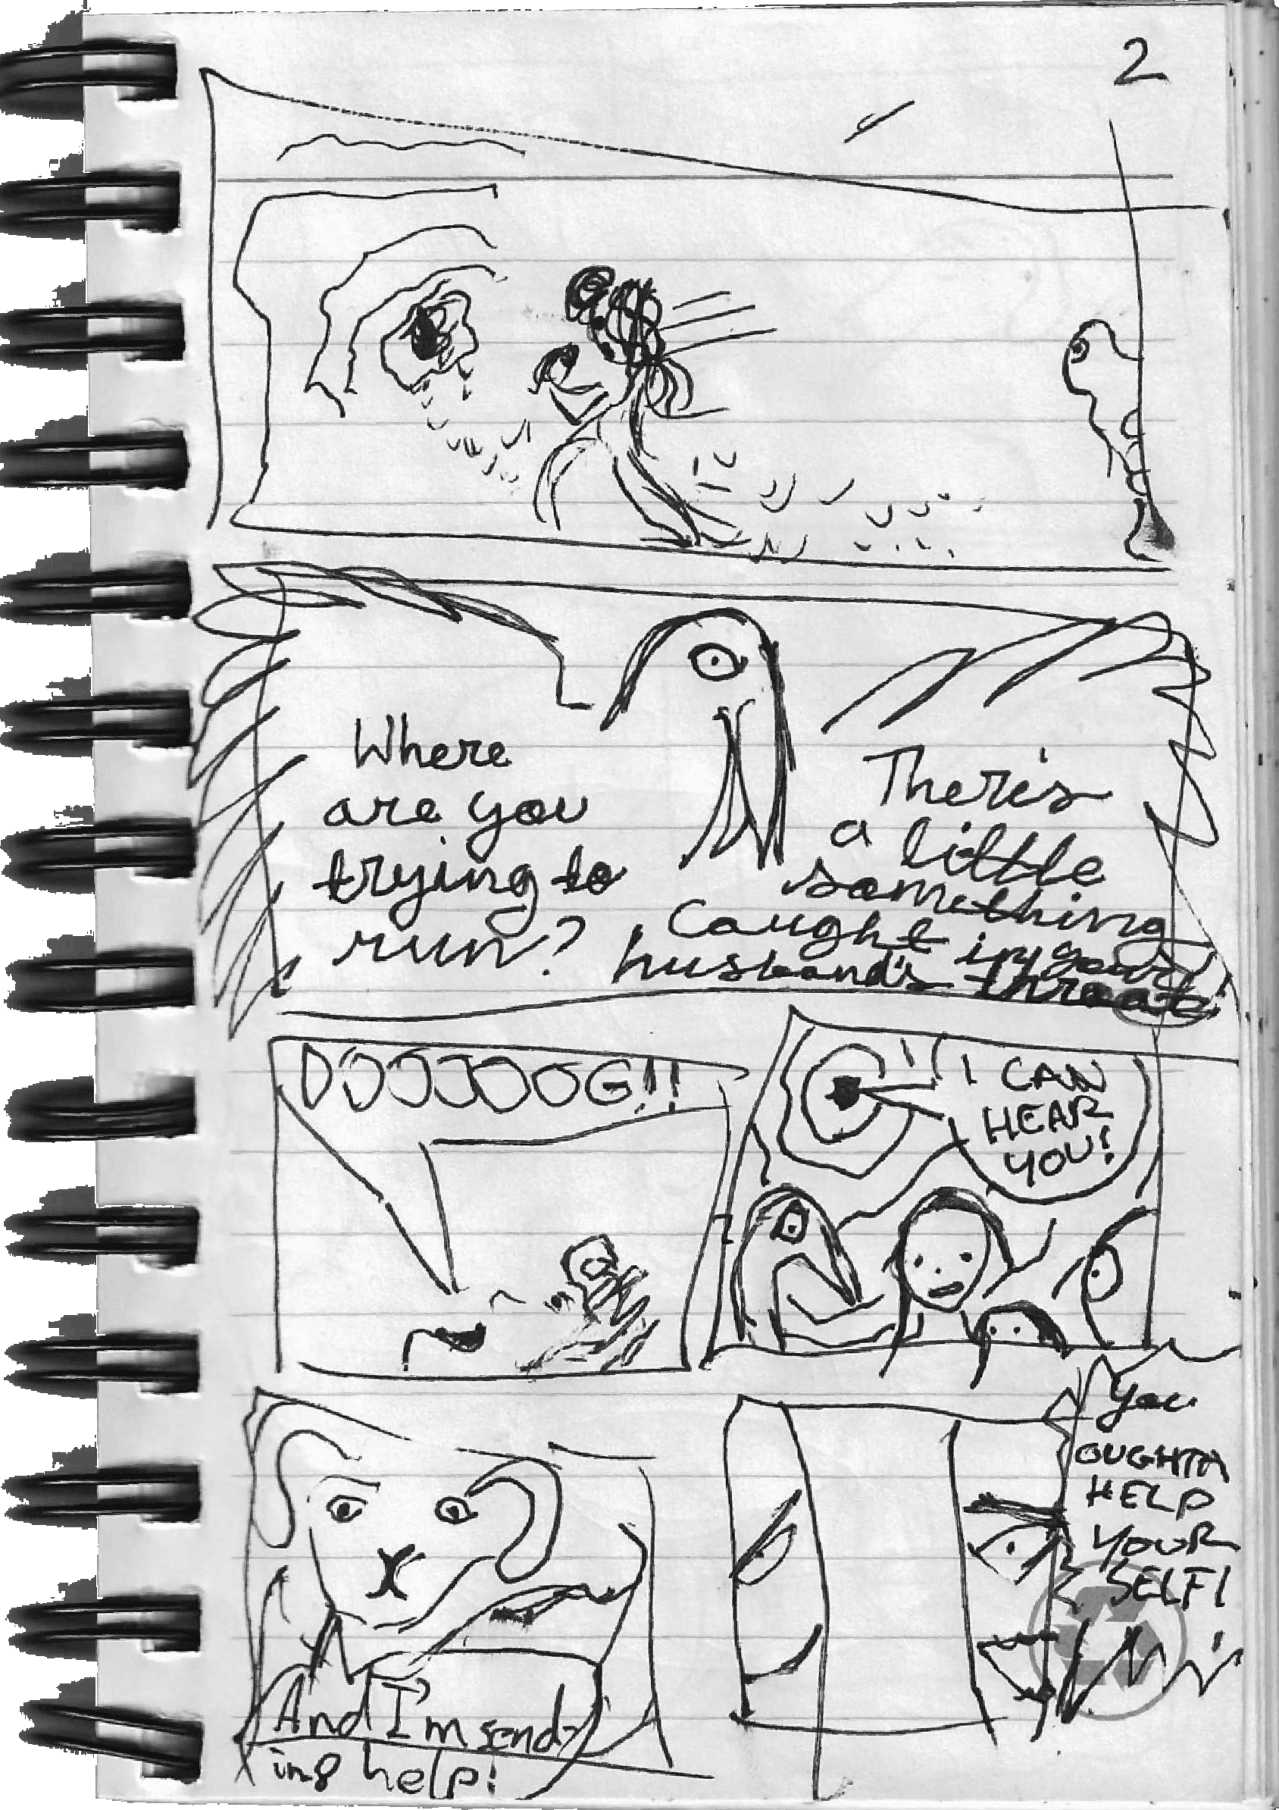 2
Where
are you
trying to
run?
There's
a little
something
Caught in your
husband's throat
DOOOOOOG!!
I CAN
HEAR
YOU!
And I'm send-
ing help!
You
OUGHTA
HELP
YOUR
SELF!